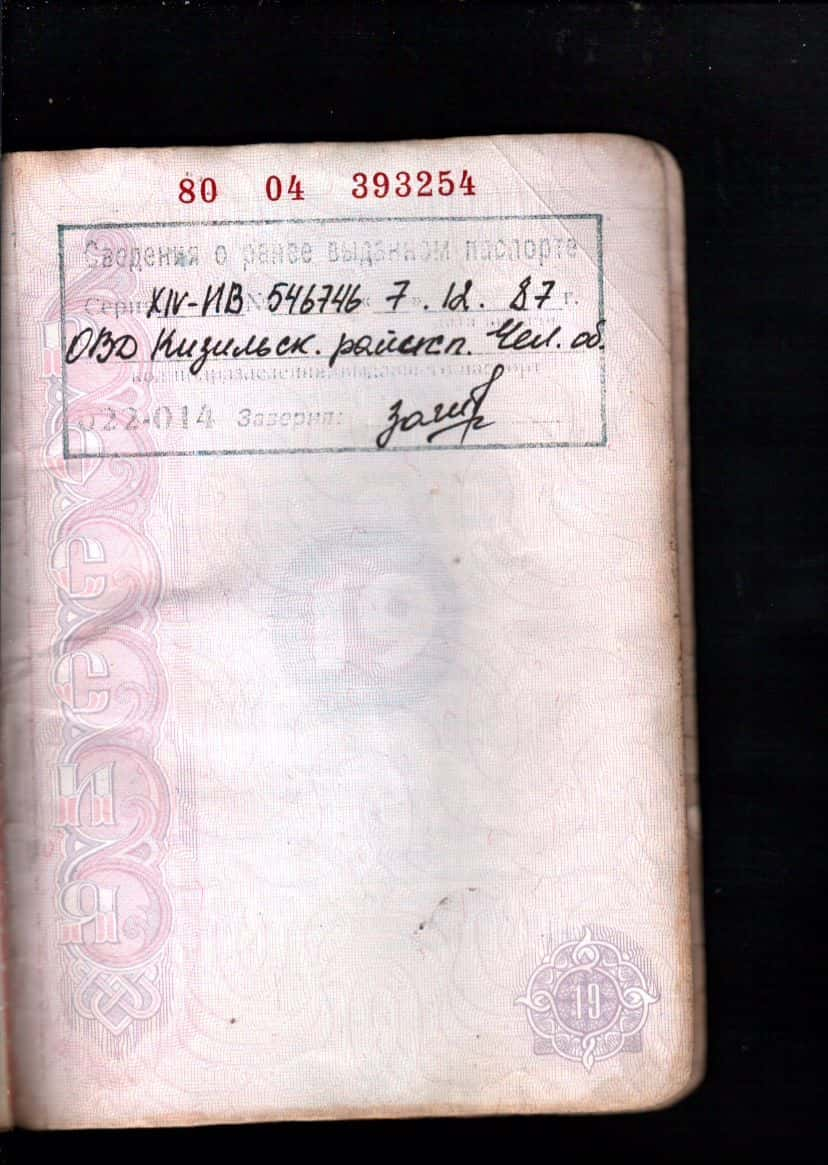 80 04 393254
Сведения о ранее выданном паспорте
Серия XIV-ИВ № 546746 « 7 » . 12 . 87 г.
ОВД Кизильск. райисп. Чел. об.
код подразделения, выдавшего паспорт
022-014 Заверил:
РОССИЯ
19
19